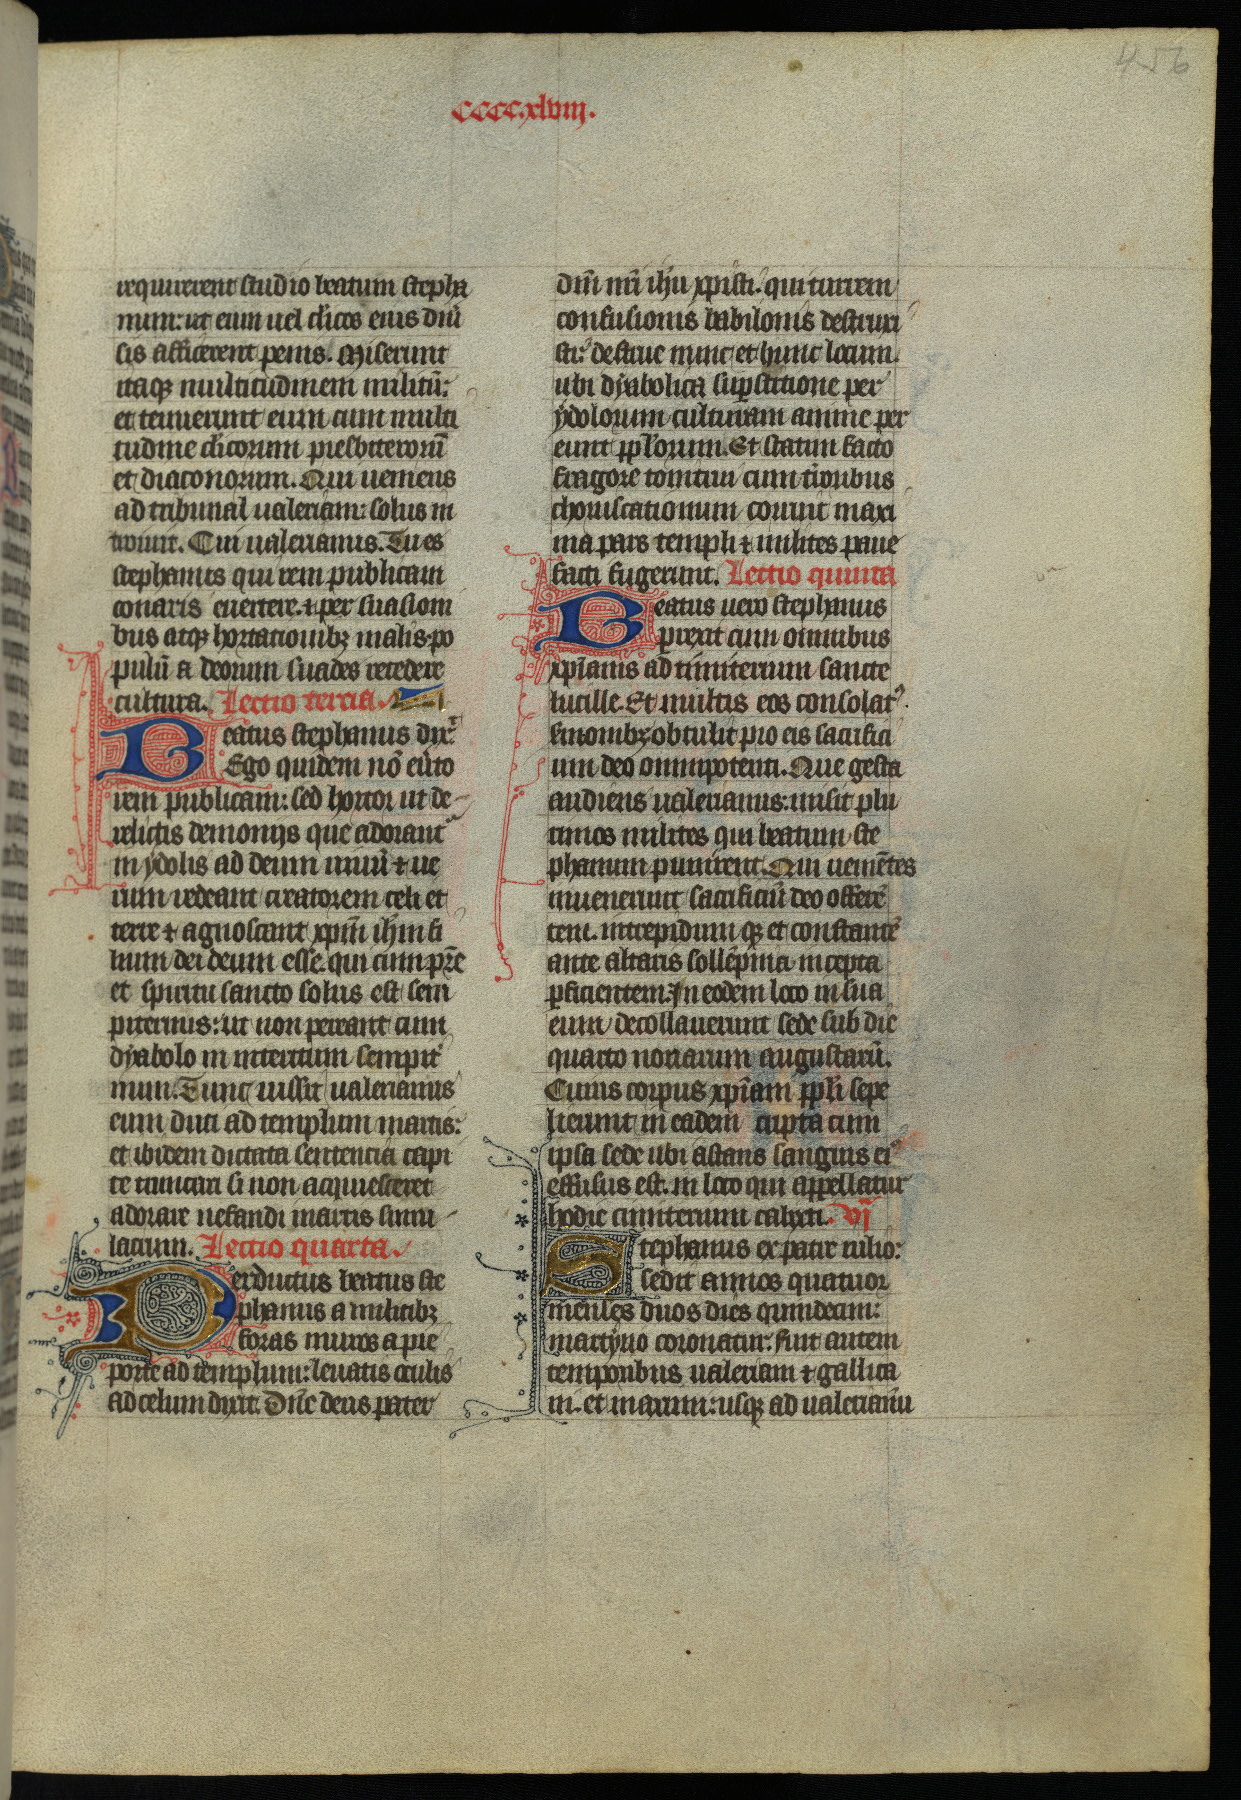 456
cccc.xlviij.
requirerent studio beatum stepha
num: ut eum uel cl̃icos eius diũ
sis afficerent penis. Miserunt
itaqꝫ multitudinem militũ:
et tenuerunt eum cum multi
tudine cl̃icorum presbiterorũ
et diaconorum. Qui ueniens
ad tribunal ualeriani: solus in
troiuit. Cui ualerianus. Tu es
stephanus qui rem publicam
conaris euertere. ⁊ per suasioni
bus atqꝫ hortationibꝫ malis po
pulũ a deorum suades recedere
cultura. Lectio tercia.
Beatus stephanus dix̃
Ego quidem nõ eũto
rem publicam: sed hortor ut de-
relictis demonijs que adorant
in ydolis ad deum unũ ⁊ ue
rum redeant creatorem celi et
terre ⁊ agnoscant xp̃m ih̃m fi
lium dei deum esse. qui cum pr̃e
et spiritu sancto solus est sem
piternus: ut non pereant cum
dyabolo in interitum sempit̾
num. Tunc iussit ualerianus
eum duci ad templum martis:
et ibidem dictata sentencia capi
te truncari si non acquiesceret
adorare nefandi martis simu
lacrum. Lectio quarta.
Perductus beatus ste
phanus a militibꝫ
foras muros a pie
porte ad templum: leuatis oculis
ad celum dixit. Dñe deus pater
dñi nr̃i ih̃u xp̃isti. qui turrem
confusionis babilonis destruxi
sti: destrue nunc et hunc locum.
ubi dyabolica suꝑstitione per
ydolorum culturam anime per
eunt pp̃lorum. Et statim facto
fragore tonitrui cum tr̃oribus
choruscationum corruit maxi
ma pars templi ⁊ milites paue
facti fugerunt. Lectio quinta
Beatus uero stephanus
ꝑrexit cum omnibus
xp̃ianis ad cimiterium sancte
lucille. Et multis eos consolat̾.
sermonibꝫ obtulit pro eis sacrifici
um deo omnipotenti. Que gesta
audiens ualerianus: misit plu
rimos milites qui beatum ste
phanum punirent. Qui ueniẽtes
inuenerunt sacrificiũ deo offerẽ
tem. intrepidum qꝫ et constantẽ
ante altaris sollẽpnia incepta
ꝑficientem. In eodem loco in sua
eum decollauerunt sede sub die
quarto nonarum augustarũ.
Cuius corpus xp̃iani pp̃li sepe
lierunt in eadem cripta cum
ipsa sede ubi astans sanguis ei
effusus est. in loco qui appellatur
hodie cimiterium calixti. vi
Stephanus ex patre iulio:
sedit annos quatuor
menses duos dies quindecim:
martyrio coronatur. fuit autem
temporibus ualeriani ⁊ gallica
ni. et maximi: usqꝫ ad ualerianũ